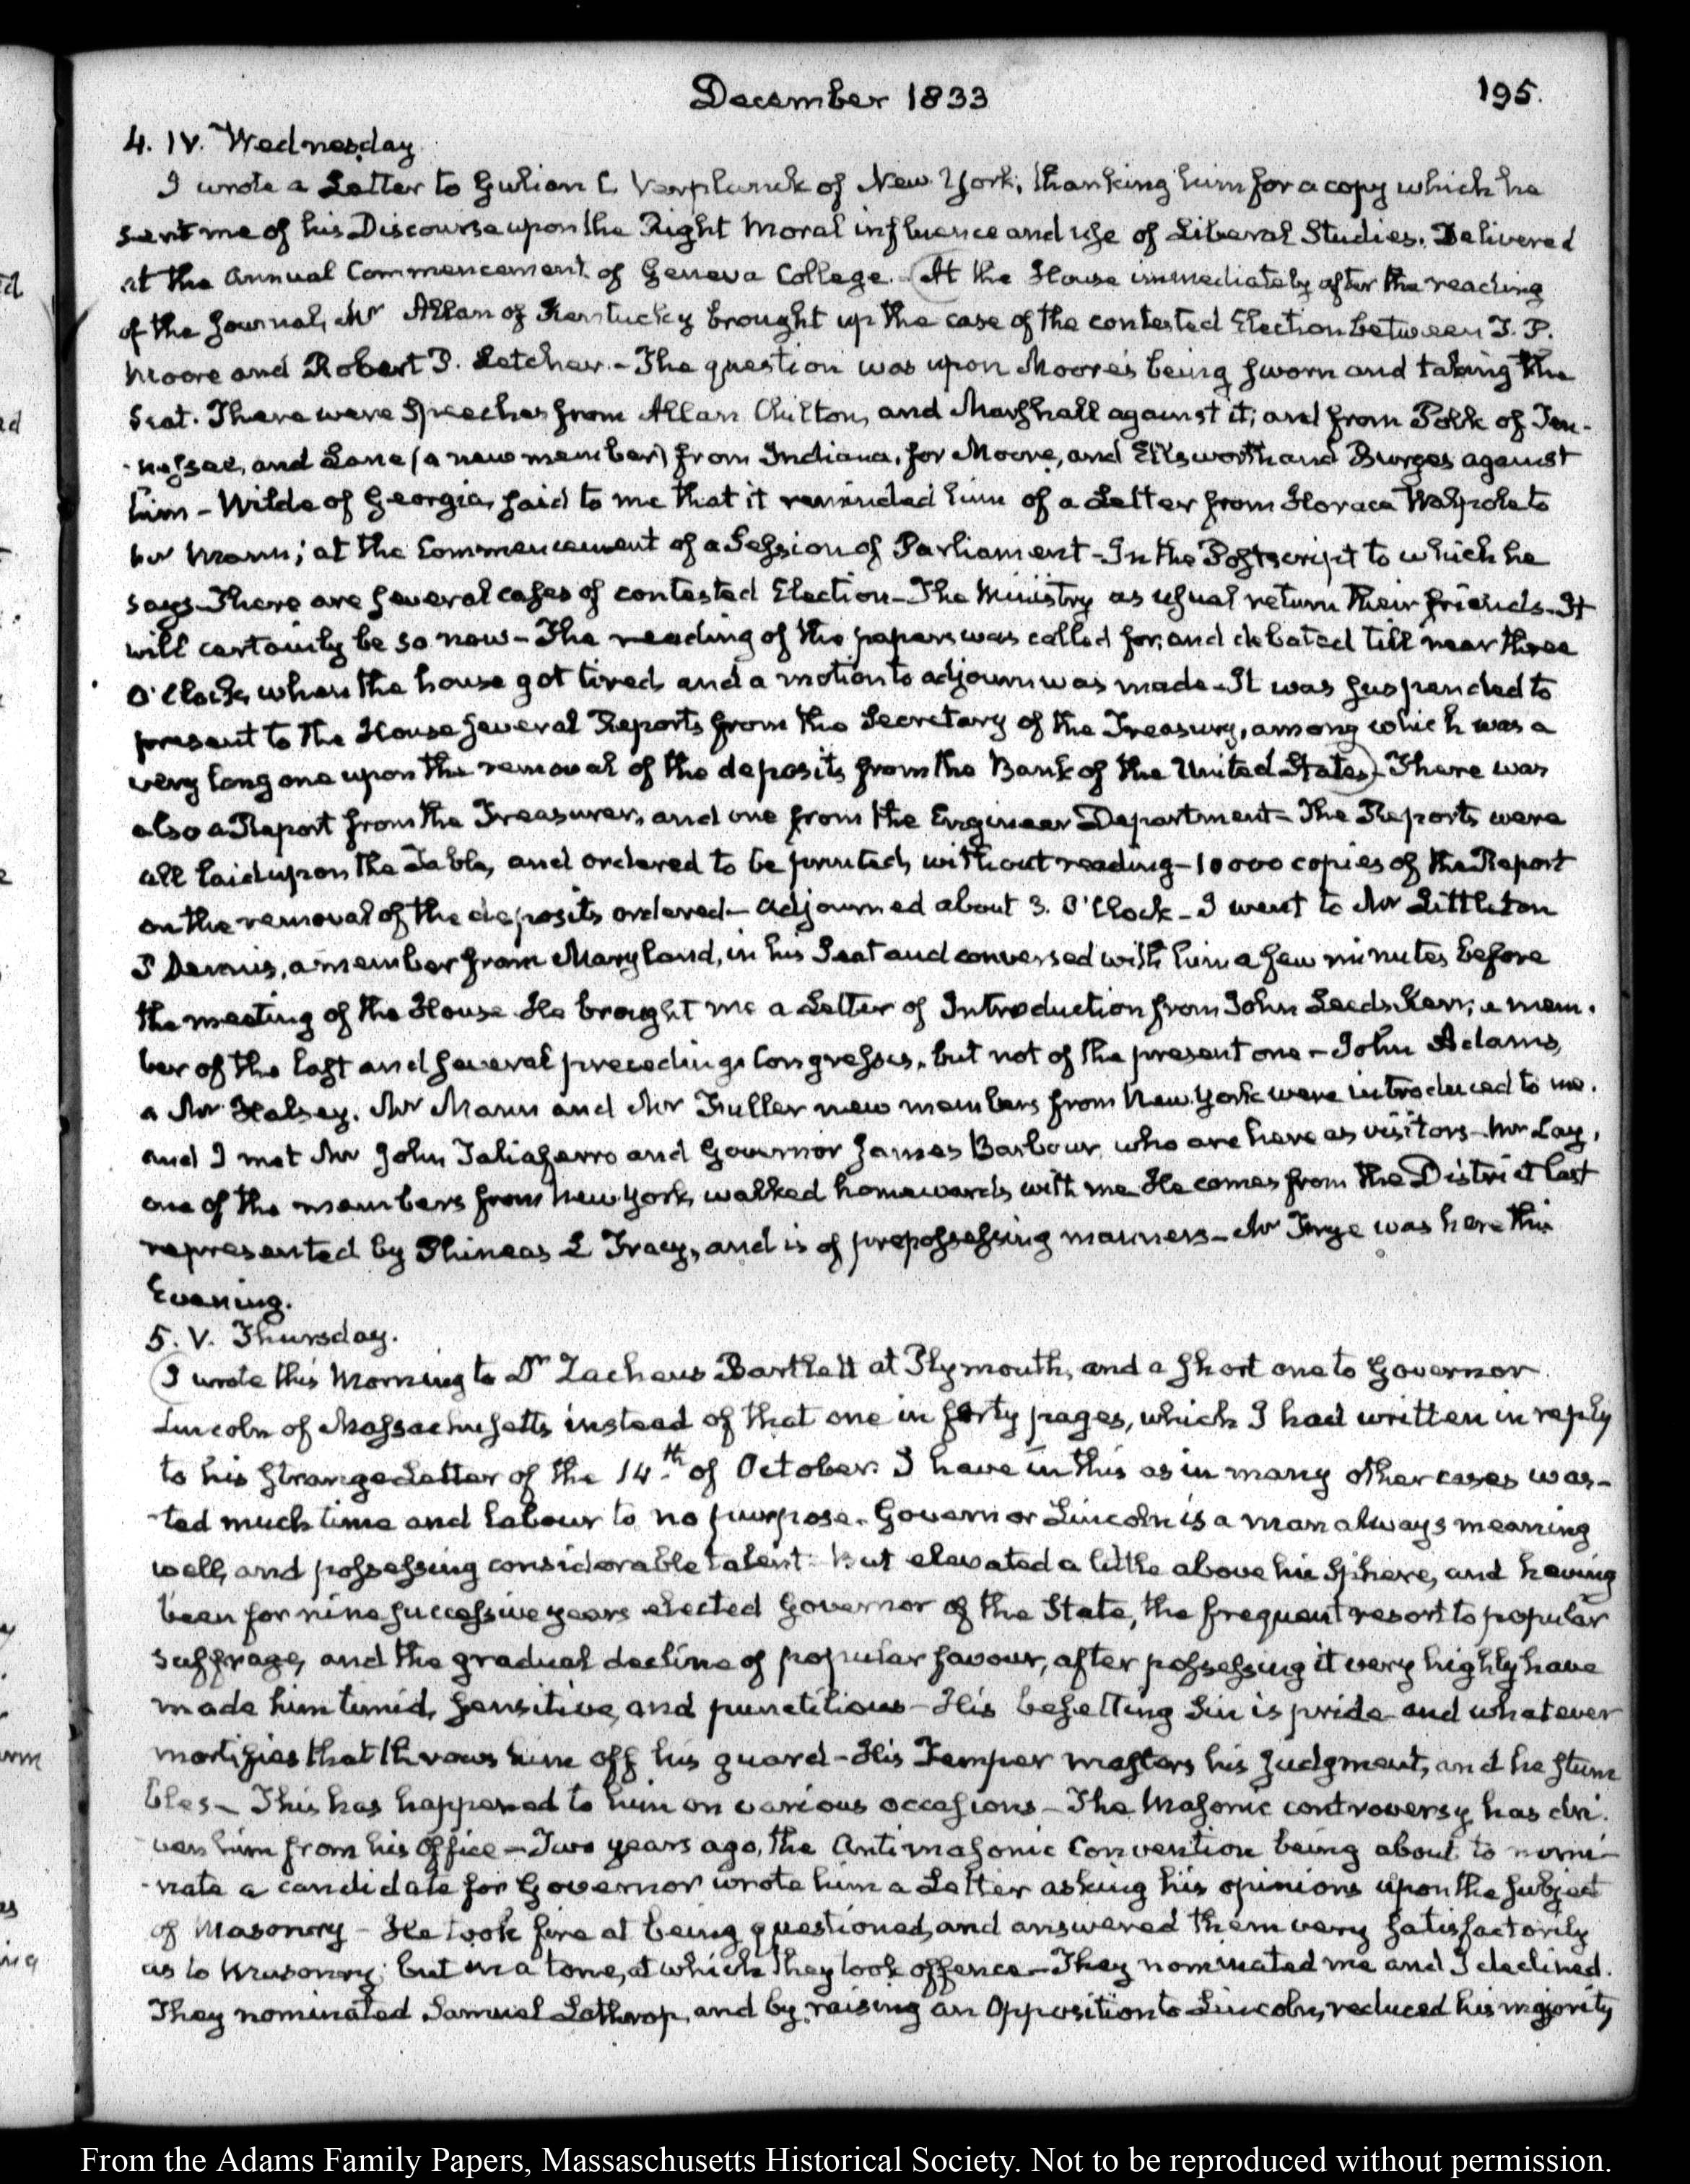 December 1833
195.
4. IV. Wednesday.
I wrote a Letter to Gulian C. Verplanck of New York, thanking him for a copy which he
sent me of his Discourse upon the Right Moral influence and use of Liberal Studies. Delivered
at the annual Commencement of Geneva College. At the House immediately after the reading
of the Journal, Mr Allan of Kentucky brought up the case of the contested Election between T. P.
Moore and Robert P. Letcher.- The question was upon Moore's being sworn and taking the
Seat. There were Speeches from Allan, Chilton, and Marshall against it; and from Polk of Ten-
-nessee, and Lane (a new member) from Indiana, for Moore, and Ellsworth and Burges against
him - Wilde of Georgia, said to me that it reminded him of a Letter from Horace Walpole to
Mann; at the Commencement of a Session of Parliament - In the Postscript to which he
says There are several cases of contested Election - The Ministry as usual return their friends - It
will certainly be so now - The reading of the papers was called for, and debated till near three
O'Clock, when the house got tired and a motion to adjourn was made - It was suspended to
present to the House several Reports from the Secretary of the Treasury, among which was a
very long one upon the removal of the deposits from the Bank of the United States) - There was
also a Report from the Treasurer, and one from the Engineer Department - The Reports were
all laid upon the Table, and ordered to be printed, without reading - 10000 copies of the Report
on the removal of the deposits ordered - adjourned about 3. O'Clock - I went to Mr Littleton
P Dennis, a member from Maryland, in his Seat and conversed with him a few minutes before
the meeting of the House He brought me a Letter of Introduction from John Leeds Kerr, a mem.
ber of the last and several preceding Congresses, but not of the present one - John Adams,
a Mr Halsey, Mr Mann and Mr Fuller new members from New York were introduced to me.
and I met Mr John Taliaferro and Governor James Barbour, who are here as visitors - Mr Lay,
one of the members from New York, walked homewards with me He comes from the District last
represented by Phineas L Tracy, and is of prepossessing manners - Mr Frye was here this
Evening.
5. V. Thursday.
I wrote this Morning to Dr Zacheus Bartlett at Plymouth, and a short one to Governor
Lincoln of Massachusetts instead of that one in forty pages, which I had written in reply
to his strange Letter of the 14th of October. I have in this as in many other cases was-
-ted much time and labour to no purpose. Governor Lincoln is a man always meaning
well, and possessing considerable talent: But elevated a little above his Sphere, and having
been for nine successive years elected Governor of the State, the frequent resort to popular
suffrage, and the gradual decline of popular favour, after possessing it very highly have
made him timid, sensitive, and punctilious - His besetting Sin is pride and whatever
mortifies that throws him off his guard - His Temper masters his Judgment, and he stum
bles - This has happened to him on various occasions - The Masonic controversy has dri.
ven him from his Office - Two years ago, the Antimasonic Convention being about to nomi-
-nate a candidate for Governor wrote him a Letter asking his opinions upon the subject
of Masonry - He took fire at being questioned, and answered them very satisfactorily
as to Masonry; but in a tone, at which they took offence - They nominated me and I declined.
They nominated Samuel Lathrop, and by raising an Opposition to Lincoln, reduced his majority
From the Adams Family Papers, Massaschusetts Historical Society. Not to be reproduced without permission.